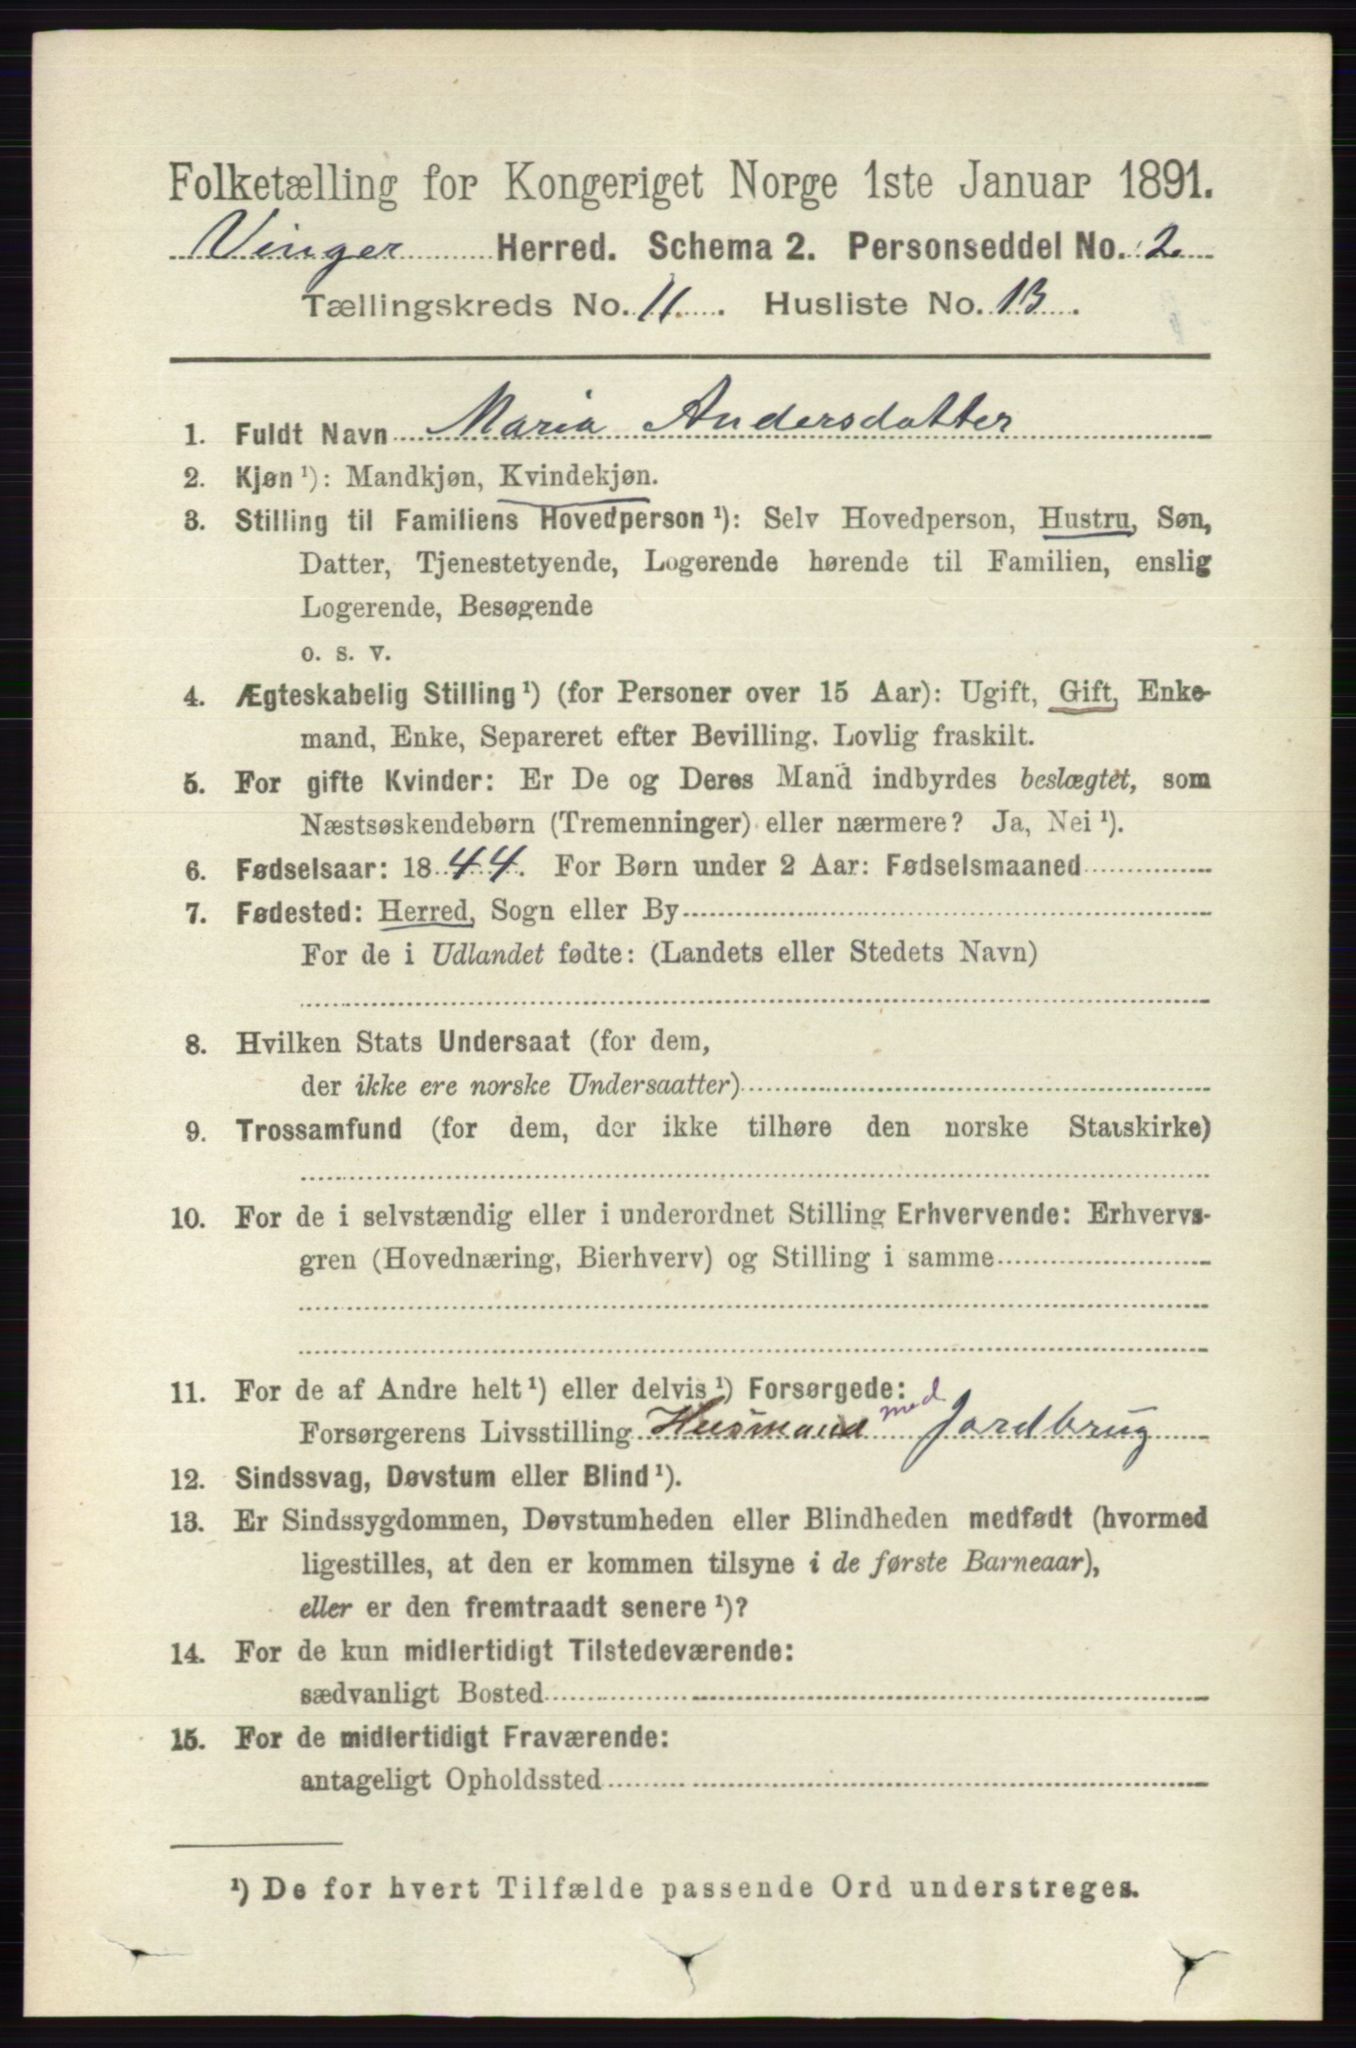 Folketælling for Kongeriget Norge 1ste Januar 1891.
Vinger Herred. Schema 2. Personseddel No. 2.
Tællingskreds No. 11. Husliste No. 13.
1. Fuldt Navn Maria Andersdatter
2. Kjøn ¹): Mandkjøn, Kvindekjøn.
3. Stilling til Familiens Hovedperson ¹): Selv Hovedperson, Hustru, Søn,
Datter, Tjenestetyende, Logerende hørende til Familien, enslig
Logerende, Besøgende
o. s. v.
4. Ægteskabelig Stilling ¹) (for Personer over 15 Aar): Ugift, Gift, Enke-
mand, Enke, Separeret efter Bevilling. Lovlig fraskilt.
5. For gifte Kvinder: Er De og Deres Mand indbyrdes beslægtet, som
Næstsøskendebørn (Tremenninger) eller nærmere? Ja, Nei ¹).
6. Fødselsaar: 1844. For Børn under 2 Aar: Fødselsmaaned
7. Fødested: Herred, Sogn eller By
For de i Udlandet fødte: (Landets eller Stedets Navn)
8. Hvilken Stats Undersaat (for dem,
der ikke ere norske Undersaatter)
9. Trossamfund (for dem, der ikke tilhøre den norske Statskirke)
10. For de i selvstændig eller i underordnet Stilling Erhvervende: Erhvervs-
gren (Hovednæring, Bierhverv) og Stilling i samme
11. For de af Andre helt ¹) eller delvis ¹) Forsørgede:
Forsørgerens Livsstilling Husmand med Jordbrug
12. Sindssvag, Døvstum eller Blind ¹).
13. Er Sindssygdommen, Døvstumheden eller Blindheden medfødt (hvormed
ligestilles, at den er kommen tilsyne i de første Barneaar),
eller er den fremtraadt senere ¹)?
14. For de kun midlertidigt Tilstedeværende:
sædvanligt Bosted
15. For de midlertidigt Fraværende:
antageligt Opholdssted
¹) De for hvert Tilfælde passende Ord understreges.